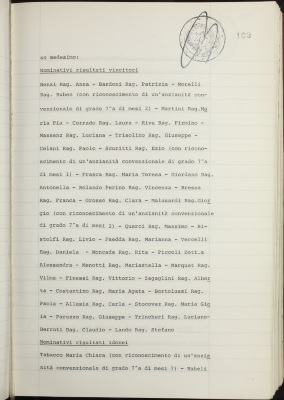 109
so medesimo:
Nominativi risultati vincitori
Bensi Rag. Anna - Bardosi Rag. Patrizia - Morelli
Rag. Ruben (con riconoscimento di un'anzianità con-
venzionale di grado 7°a di mesi 2) - Martini Rag. Ma
ria Pia - Corrado Rag. Laura - Riva Rag. Firmino -
Massenz Rag. Luciana - Trisolino Rag. Giuseppe -
Celani Rag. Paolo - Rag. Ezio (con ricono-
scimento di un'anzianità convenzionale di grado 7°a
di mesi 1) - Franza Rag. Maria Teresa - Giordano Rag.
Antonella - Rolando Perino Rag. Vincenza - Bresso
Rag. Franca - Grosso Rag. Clara - Rag. Gior
gio (con riconoscimento di un'anzianità convenzionale
di grado 7°a di mesi 2) - Querci Rag. Massimo - Bi-
stolfi Rag. Livio - Faedda Rag. Marianna - Vercelli
Rag. Daniela - Moncada Rag. Rita - Piccoli Dott.a
Alessandra - Menotti Rag. Mariastella - Marquet Rag.
Vilma - Rag. Vittorio - Zagaglini Rag. Alber
to - Costantino Rag. Maria Agata - Bortolussi Rag.
Paola - Allemia Rag. Carla - Rag. Maria Gig
ia - Parusso Rag. Giuseppe - Trincheri Rag. Luciano-
Berruti Rag. Claudio - Lando Rag. Stefano
Nominativi risultati idonei
Tabacco Maria Chiara (con riconoscimento di un'anzia
nità convenzionale di grado 7°a di mesi 1) -